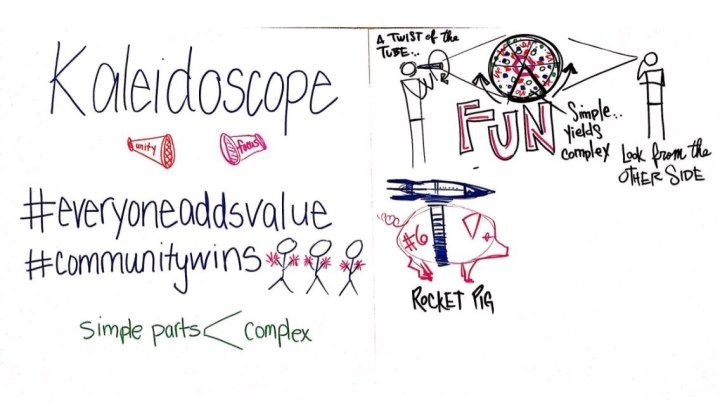 Kaleidoscope
unity
focus
#everyoneaddsvalue
#communitywins
simple parts < complex
A TWIST of the
TUBE...
FUN
Simple..
yields
complex
Look from the
OTHER SIDE
#6
ROCKET PIG